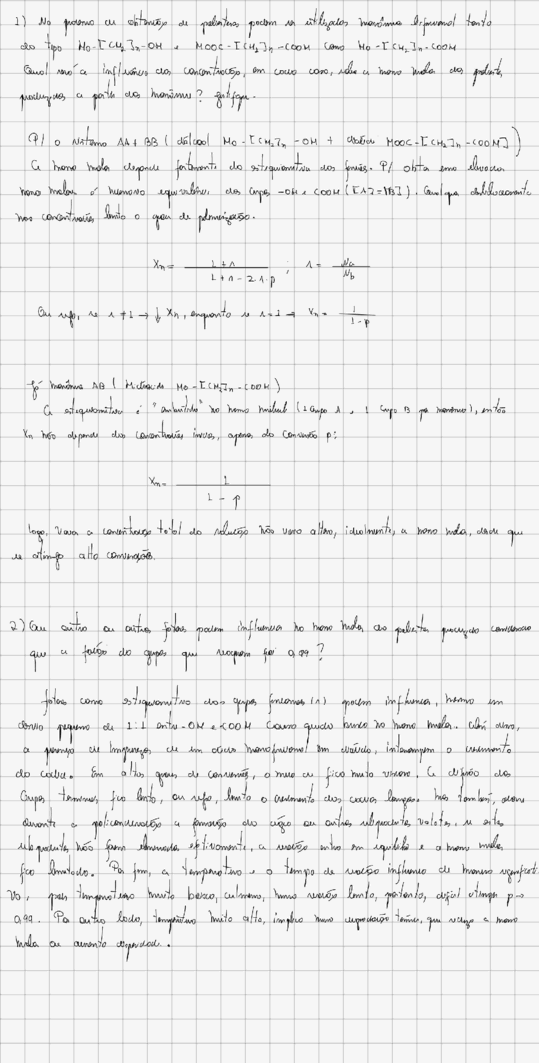 1) No processo de obtenção de poliésteres podem ser utilizados monômeros bifuncional tanto
do tipo HO-[CH2]n-OH e HOOC-[CH2]n-COOH como HO-[CH2]n-COOH
Qual será a influência das concentrações, em cada caso, sobre a massa molar dos poliésteres
produzidos a partir dos monômeros? Justifique.
P/ o sistema AA + BB ( diálcool HO-[CH2]n-OH + diácido HOOC-[CH2]n-COOH )
A massa molar depende fortemente da estequiometria dos funções. P/ obter uma elevada
massa molar é necessário equivalência dos grupos -OH e COOH ([A]=[B]). Qualquer desbalanceamento
nas concentrações limita o grau de polimerização.
Xn = 1+r / 1+r-2r.p ; r = Na / Nb
Ou seja, se r ≠ 1 → ↓ Xn, enquanto se r = 1 → Xn = 1 / 1-p
Já monômeros AB ( HO-[CH2]n-COOH)
A estequiometria é "embutida" na mesma molécula (1 grupo A e 1 grupo B por monômero), então
Xn não depende das concentrações iniciais, apenas da conversão p:
Xn = 1 / 1 - p
Logo, variar a concentração total da solução não varia altera, idealmente, a massa molar, desde que
se atinja alta conversões.
2) Que outro ou outros fatores podem influenciar na massa molar do poliéster produzido considerando
que a fração de grupos que reagiram foi 0,99?
Fatores como estequiometria dos grupos funcionais (r) podem influenciar, mesmo um
desvio pequeno de 1:1 entre -OH e COOH causa queda brusca na massa molar. Além disso,
a presença de impurezas de um álcool monofuncional em diácido, interrompem o crescimento
da cadeia. Em altos graus de conversões, o meio fica muito viscoso. A difusão dos
grupos terminais fica lenta, ou seja, limita o crescimento das cadeias longas. Mas também,
durante a policondensação a formação de água ou outros subprodutos voláteis, se estes
subprodutos não forem eliminados efetivamente, a reação entra em equilíbrio e a massa molar
fica limitada. Por fim, a temperatura e o tempo de reação influencia de maneira significati-
va, pois temperatura muito baixa, culmina, numa reação lenta, portanto, difícil atingir p→
0,99. Por outro lado, temperatura muito alta, implica numa degradação térmica, que reduz a massa
molar ou aumenta dispersidade.